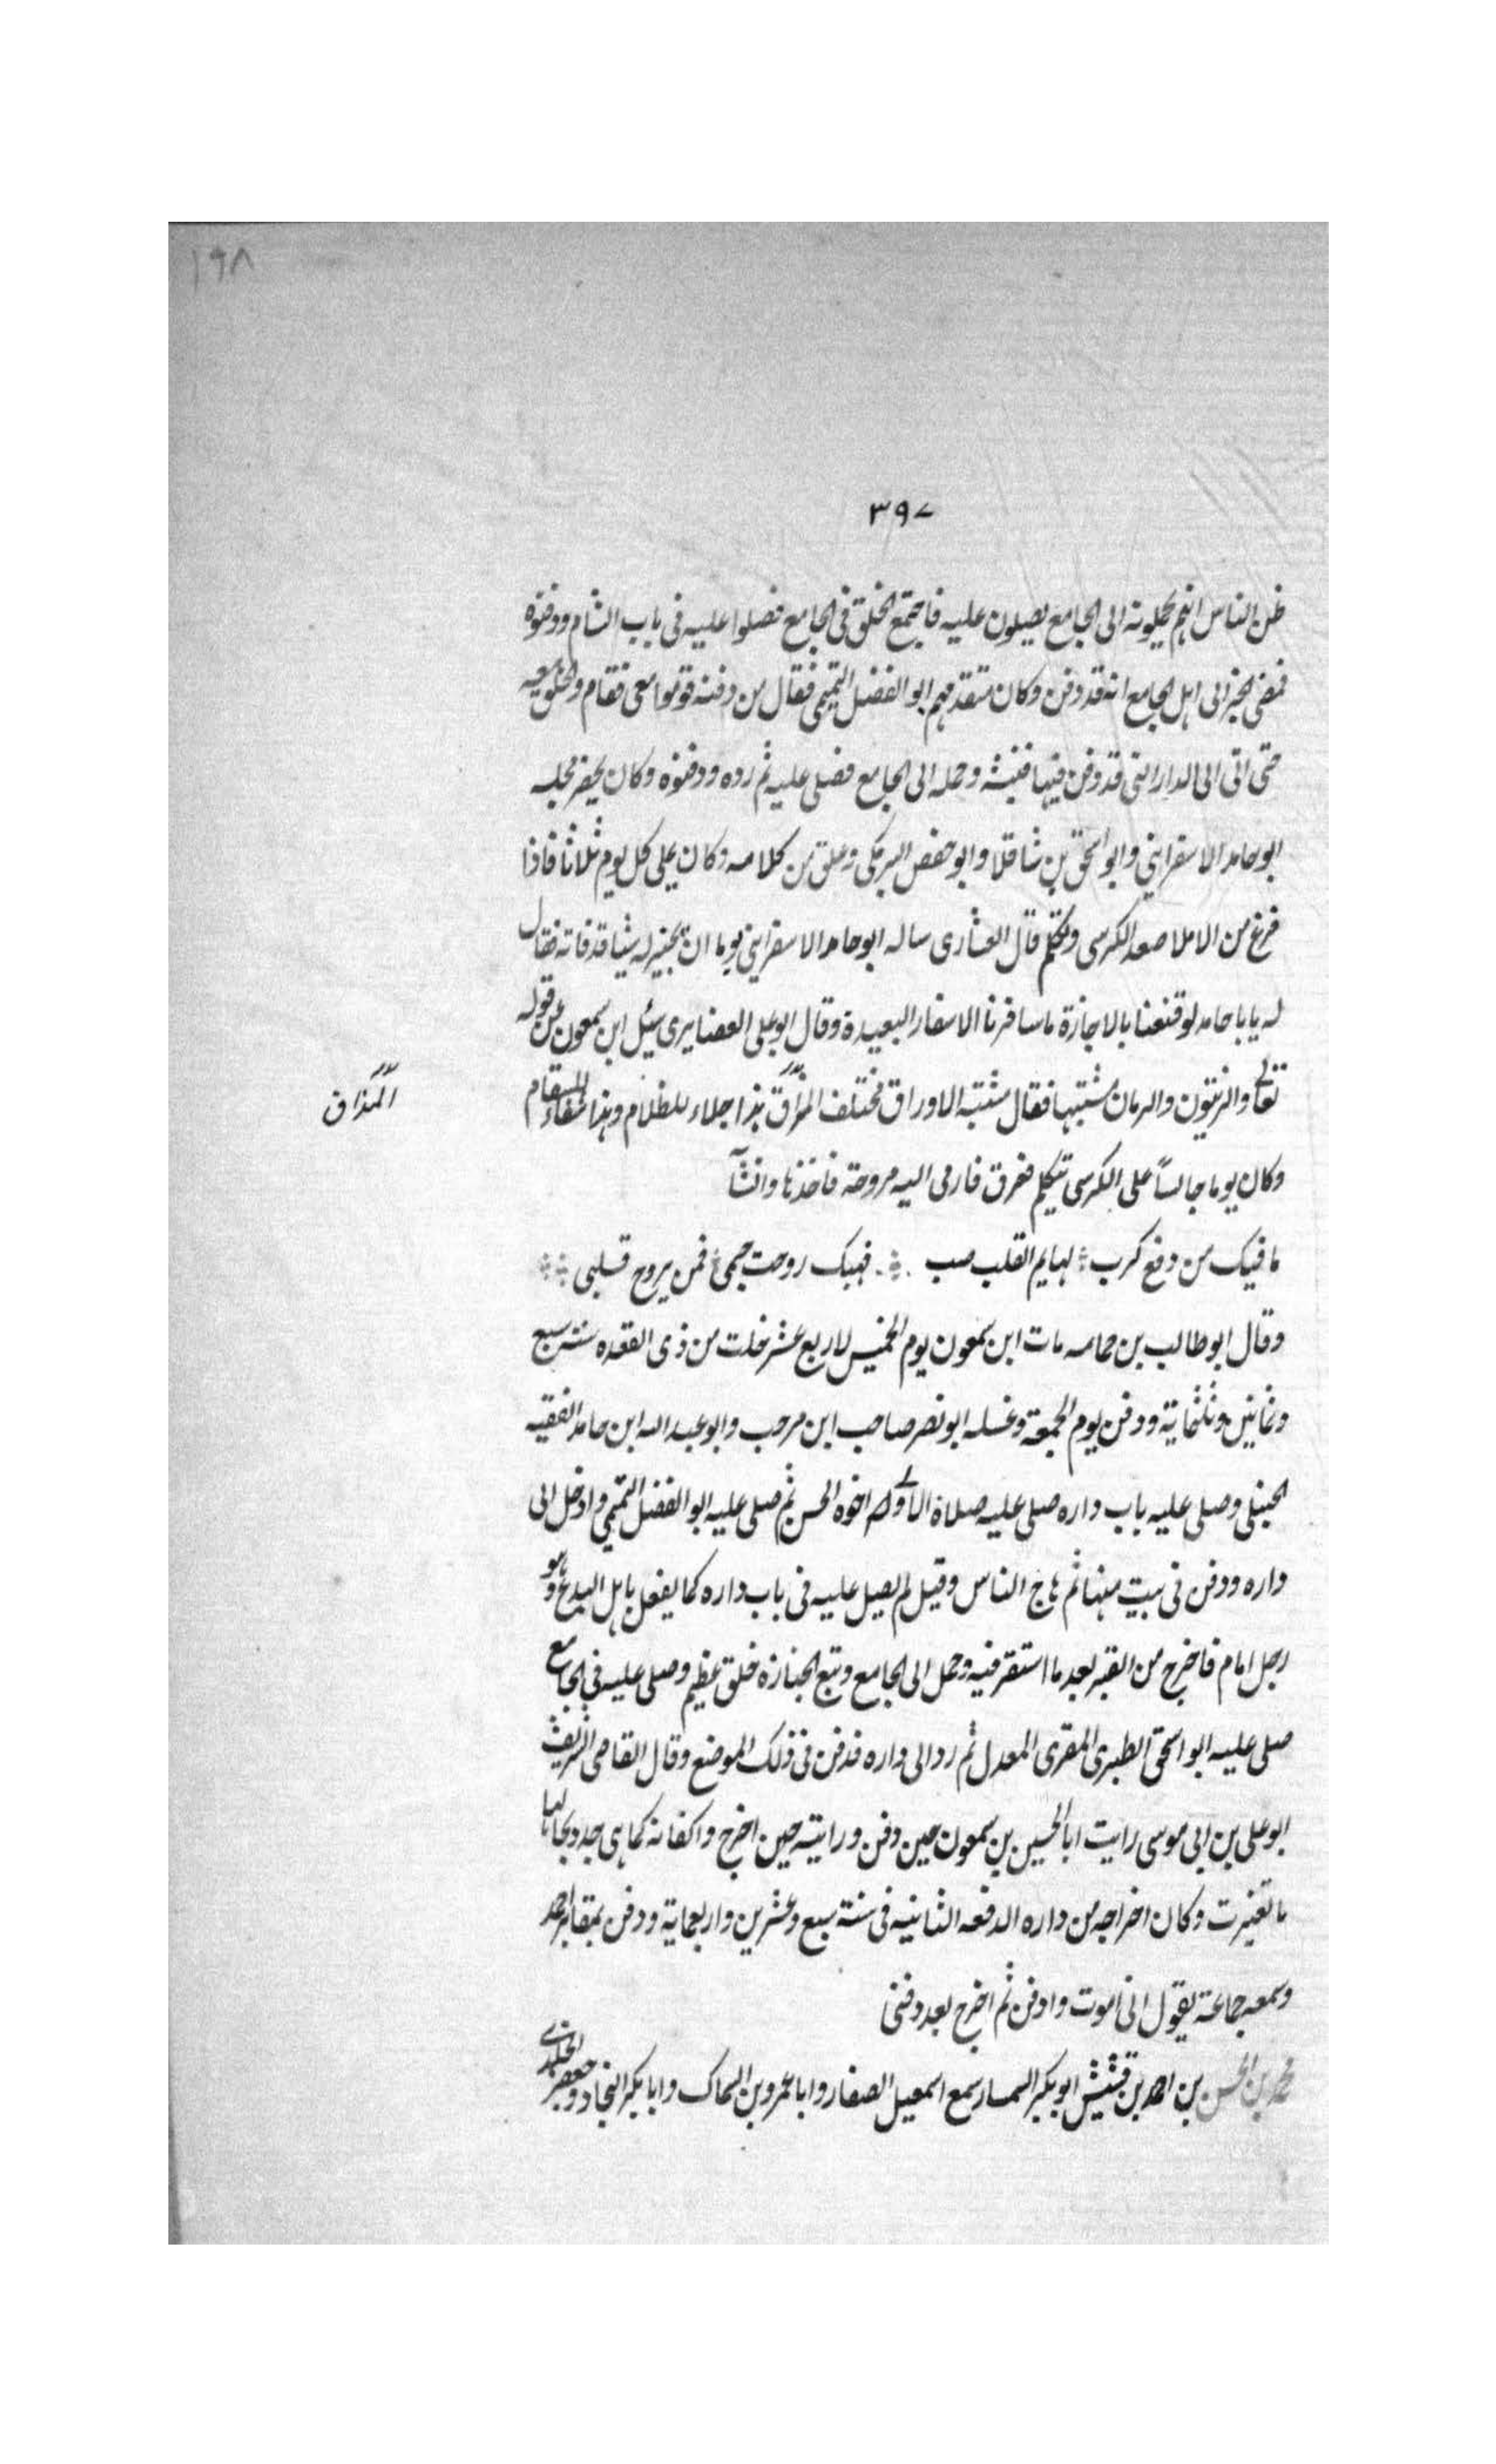 ١٩٨
٣٩٧
ظن الناس انهم يحملونه الى الجامع يصلون عليه فاجتمع الخلق فى الجامع فصلوا عليه فى باب الشام ودفنوه
فمضى الخبر الى اهل الجامع انه قد دفن وكان متقدمهم ابو الفضل التميمى فقال من دفنه قوموا معى فقام والخلق معه
حتى اتى الى الدار التى قد دفن فيها فنبشه وحمله الى الجامع فصلى عليه ثم رده ودفنوه وكان يحضر مجلسه
ابو حامد الاسفراينى وابو اسحق بن شاقلا وابو حفص البرمكى وعلق من كلامه وكان يملى كل يوم ثلاثا فاذا
فرغ من الاملا صعد الكرسى وتكلم قال العشارى ساله ابو حامد الاسفراينى يوما ان يجيز له شيا قد فاته فقال
له يابا حامد لو قنعنا بالاجازة ما سافرنا الاسفار البعيدة وقال ابو على الغضايرى سئل ابن سمعون عن قوله
تعالى والزيتون والرمان مشتبها فقال مشتبه الاوراق مختلف المذاق هذا جلاء للظلام وهذا شفاء للسقام
المذاق
وكان يوما جالساً على الكرسى يتكلم فعرق فارمى اليه مروحة فاخذها وانشآ
ما فيك من دفع كرب ؞ لهايم القلب صب ؞ فهبك روحت جسمى ؞ فمن يروح قلبى ؞
وقال ابو طالب بن حمامه مات ابن سمعون يوم الخميس لاربع عشر خلت من ذى القعده سنة سبع
وثمانين وثلثماية ودفن يوم الجمعة وغسله ابو نصر صاحب ابن مرحب وابو عبد الله ابن حامد الفقيه
الحنبلى وصلى عليه باب داره صلى عليه صلاة الاولى اخوه الحسن ثم صلى عليه ابو الفضل التميمى وادخل الى
داره ودفن فى بيت منها ثم هاج الناس وقيل لم يصل عليه فى باب داره كما يفعل باهل البدع وهو
رجل امام فاخرج من القبر بعد ما استقر فيه وحمل الى الجامع وتبع الجنازه خلق عظيم وصلى عليه فى الجامع
صلى عليه ابو اسحق الطبرى المقرى المعدل ثم رد الى داره فدفن فى ذلك الموضع وقال القاضى الشريف
ابو على بن ابى موسى رايت ابا الحسين بن سمعون حين دفن ورايته حين اخرج واكفانه كما هى جدد بحالها
ما تغيرت وكان اخراجه من داره الدفعه الثانيه فى سنة سبع وعشرين واربعماية ودفن بمقابر احمد
وسمعه جماعة يقول انى اموت وادفن ثم اخرج بعد دفنى
محمد بن الحسن بن احمد بن قشيش ابو بكر السمسار سمع اسمعيل الصفار وابا عمرو بن السماك وابا بكر النجاد وجعفر الخلدى